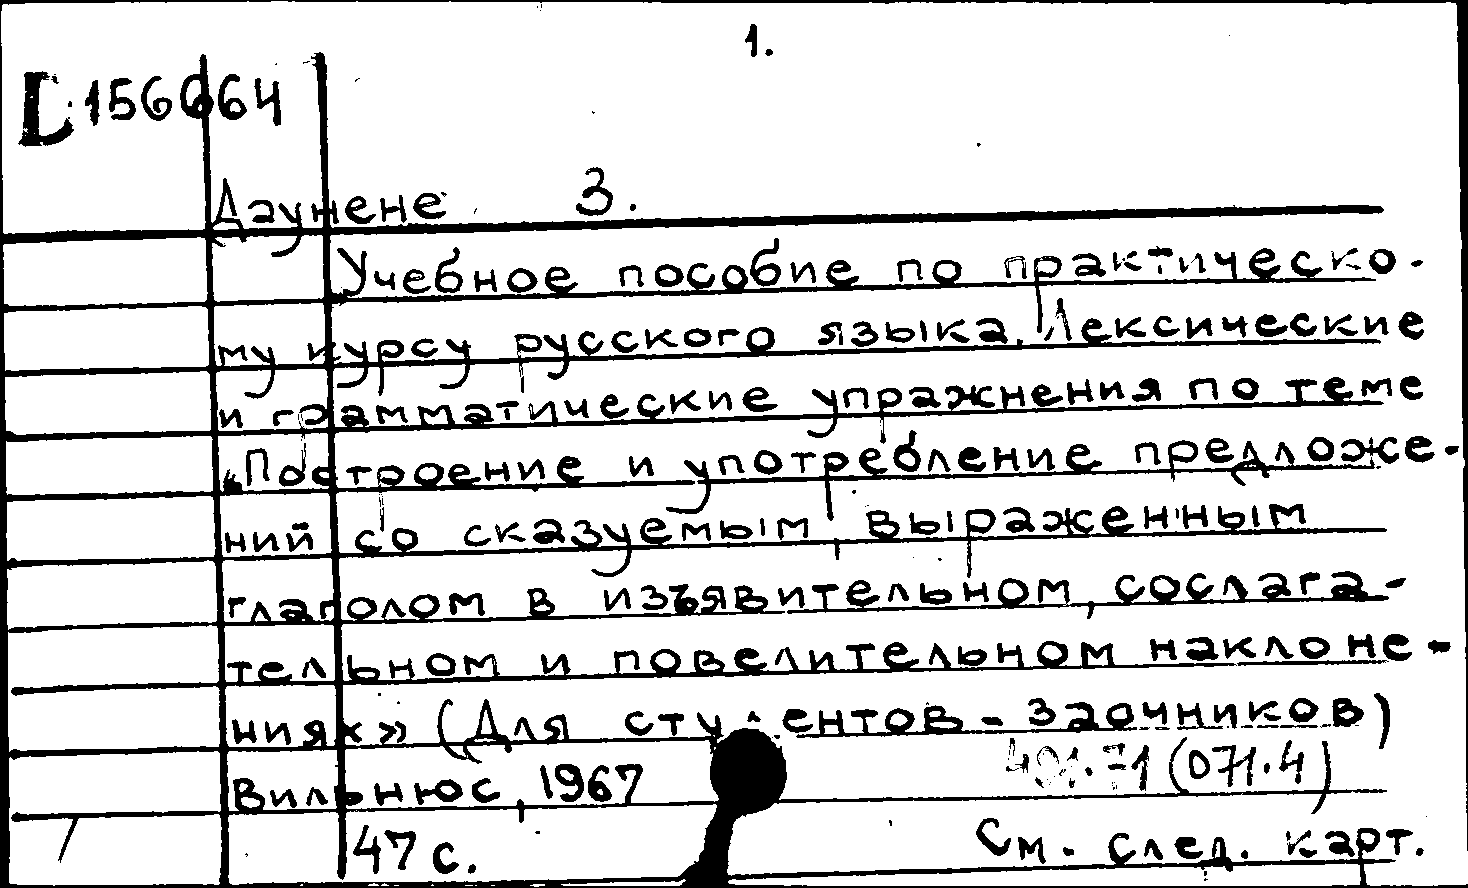 1.
L 156664
Даунене З.
Учебное пособие по практическо-
му курсу русского языка. Лексические
и грамматические упражнения по теме
„Построение и употребление предложе-
ний со сказуемым, выраженным
глаголом в изъявительном, сослага-
тельном и повелительном наклоне-
ниях» (Для студентов-заочников)
Вильнюс, 1967
491.71(071.4)
47 с. См. след. карт.